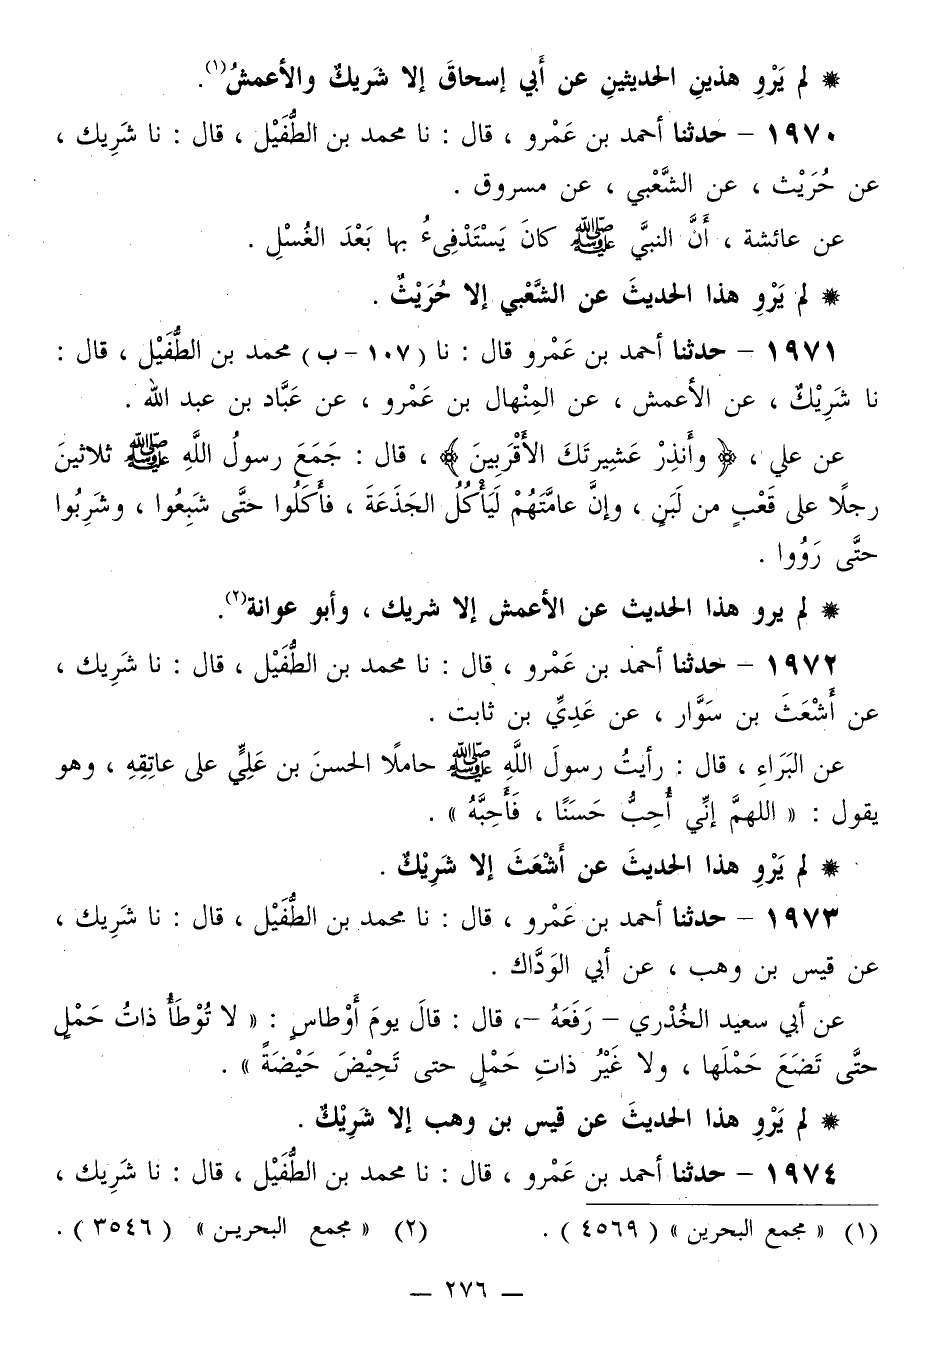 * لم يَرْوِ هذينِ الحديثينِ عن أَبي إسحاقَ إلا شَريكٌ والأعمشُ(١).
١٩٧٠ - حدثنا أحمد بن عَمْرو ، قال : نا محمد بن الطُّفَيْل ، قال : نا شَرِيك ،
عن حُرَيْث ، عن الشَّعْبي ، عن مسروق .
عن عائشة ، أَنَّ النبيَّ ﷺ كانَ يَسْتَدْفِىءُ بها بَعْدَ الغُسْلِ .
* لم يَرْوِ هذا الحديثَ عن الشَّعْبي إلا حُرَيْثٌ .
١٩٧١ - حدثنا أحمد بن عَمْرو قال : نا (١٠٧ - ب) محمد بن الطُّفَيْل ، قال :
نا شَرِيْكٌ ، عن الأعمش ، عن المِنْهال بن عَمْرو ، عن عَبَّاد بن عبد الله .
عن علي ، ﴿ وأَنذِرْ عَشِيرتَكَ الأَقْرَبِينَ ﴾ ، قال : جَمَعَ رسولُ اللَّهِ ﷺ ثلاثينَ
رجلًا على قَعْبٍ من لَبَنٍ ، وإنَّ عامَّتَهُمْ لَيَأْكُلُ الجَذَعَةَ ، فأَكَلُوا حتَّى شَبِعُوا ، وشَرِبُوا
حتَّى رَوُوا .
* لم يرو هذا الحديث عن الأعمش إلا شريك ، وأبو عوانة(٢).
١٩٧٢ - حدثنا أحمد بن عَمْرو ، قال : نا محمد بن الطُّفَيْل ، قال : نا شَرِيك ،
عن أَشْعَثَ بن سَوَّار ، عن عَدِيِّ بن ثابت .
عن البَرَاءِ ، قال : رأيتُ رسولَ اللَّهِ ﷺ حاملًا الحسنَ بن عَلِيٍّ على عاتِقِهِ ، وهو
يقول : « اللهمَّ إنِّي أُحِبُّ حَسَنًا ، فَأَحِبَّهُ » .
* لم يَرْوِ هذا الحديثَ عن أَشْعَثَ إلا شَرِيْكٌ .
١٩٧٣ - حدثنا أحمد بن عَمْرو ، قال : نا محمد بن الطُّفَيْل ، قال : نا شَرِيك ،
عن قيس بن وهب ، عن أبي الوَدَّاك .
عن أبي سعيد الخُدْري - رَفَعَهُ -، قال : قالَ يومَ أَوْطاسٍ : « لا تُوْطَأُ ذاتُ حَمْلٍ
حتَّى تَضَعَ حَمْلَها ، ولا غَيْرُ ذاتِ حَمْلٍ حتى تَحِيْضَ حَيْضَةً » .
* لم يَرْوِ هذا الحديثَ عن قيس بن وهب إلا شَرِيْكٌ .
١٩٧٤ - حدثنا أحمد بن عَمْرو ، قال : نا محمد بن الطُّفَيْل ، قال : نا شَرِيك ،
(١) « مجمع البحرين » ( ٤٥٦٩ ) . (٢) « مجمع البحرين » ( ٣٥٤٦ ) .
— ٢٧٦ —